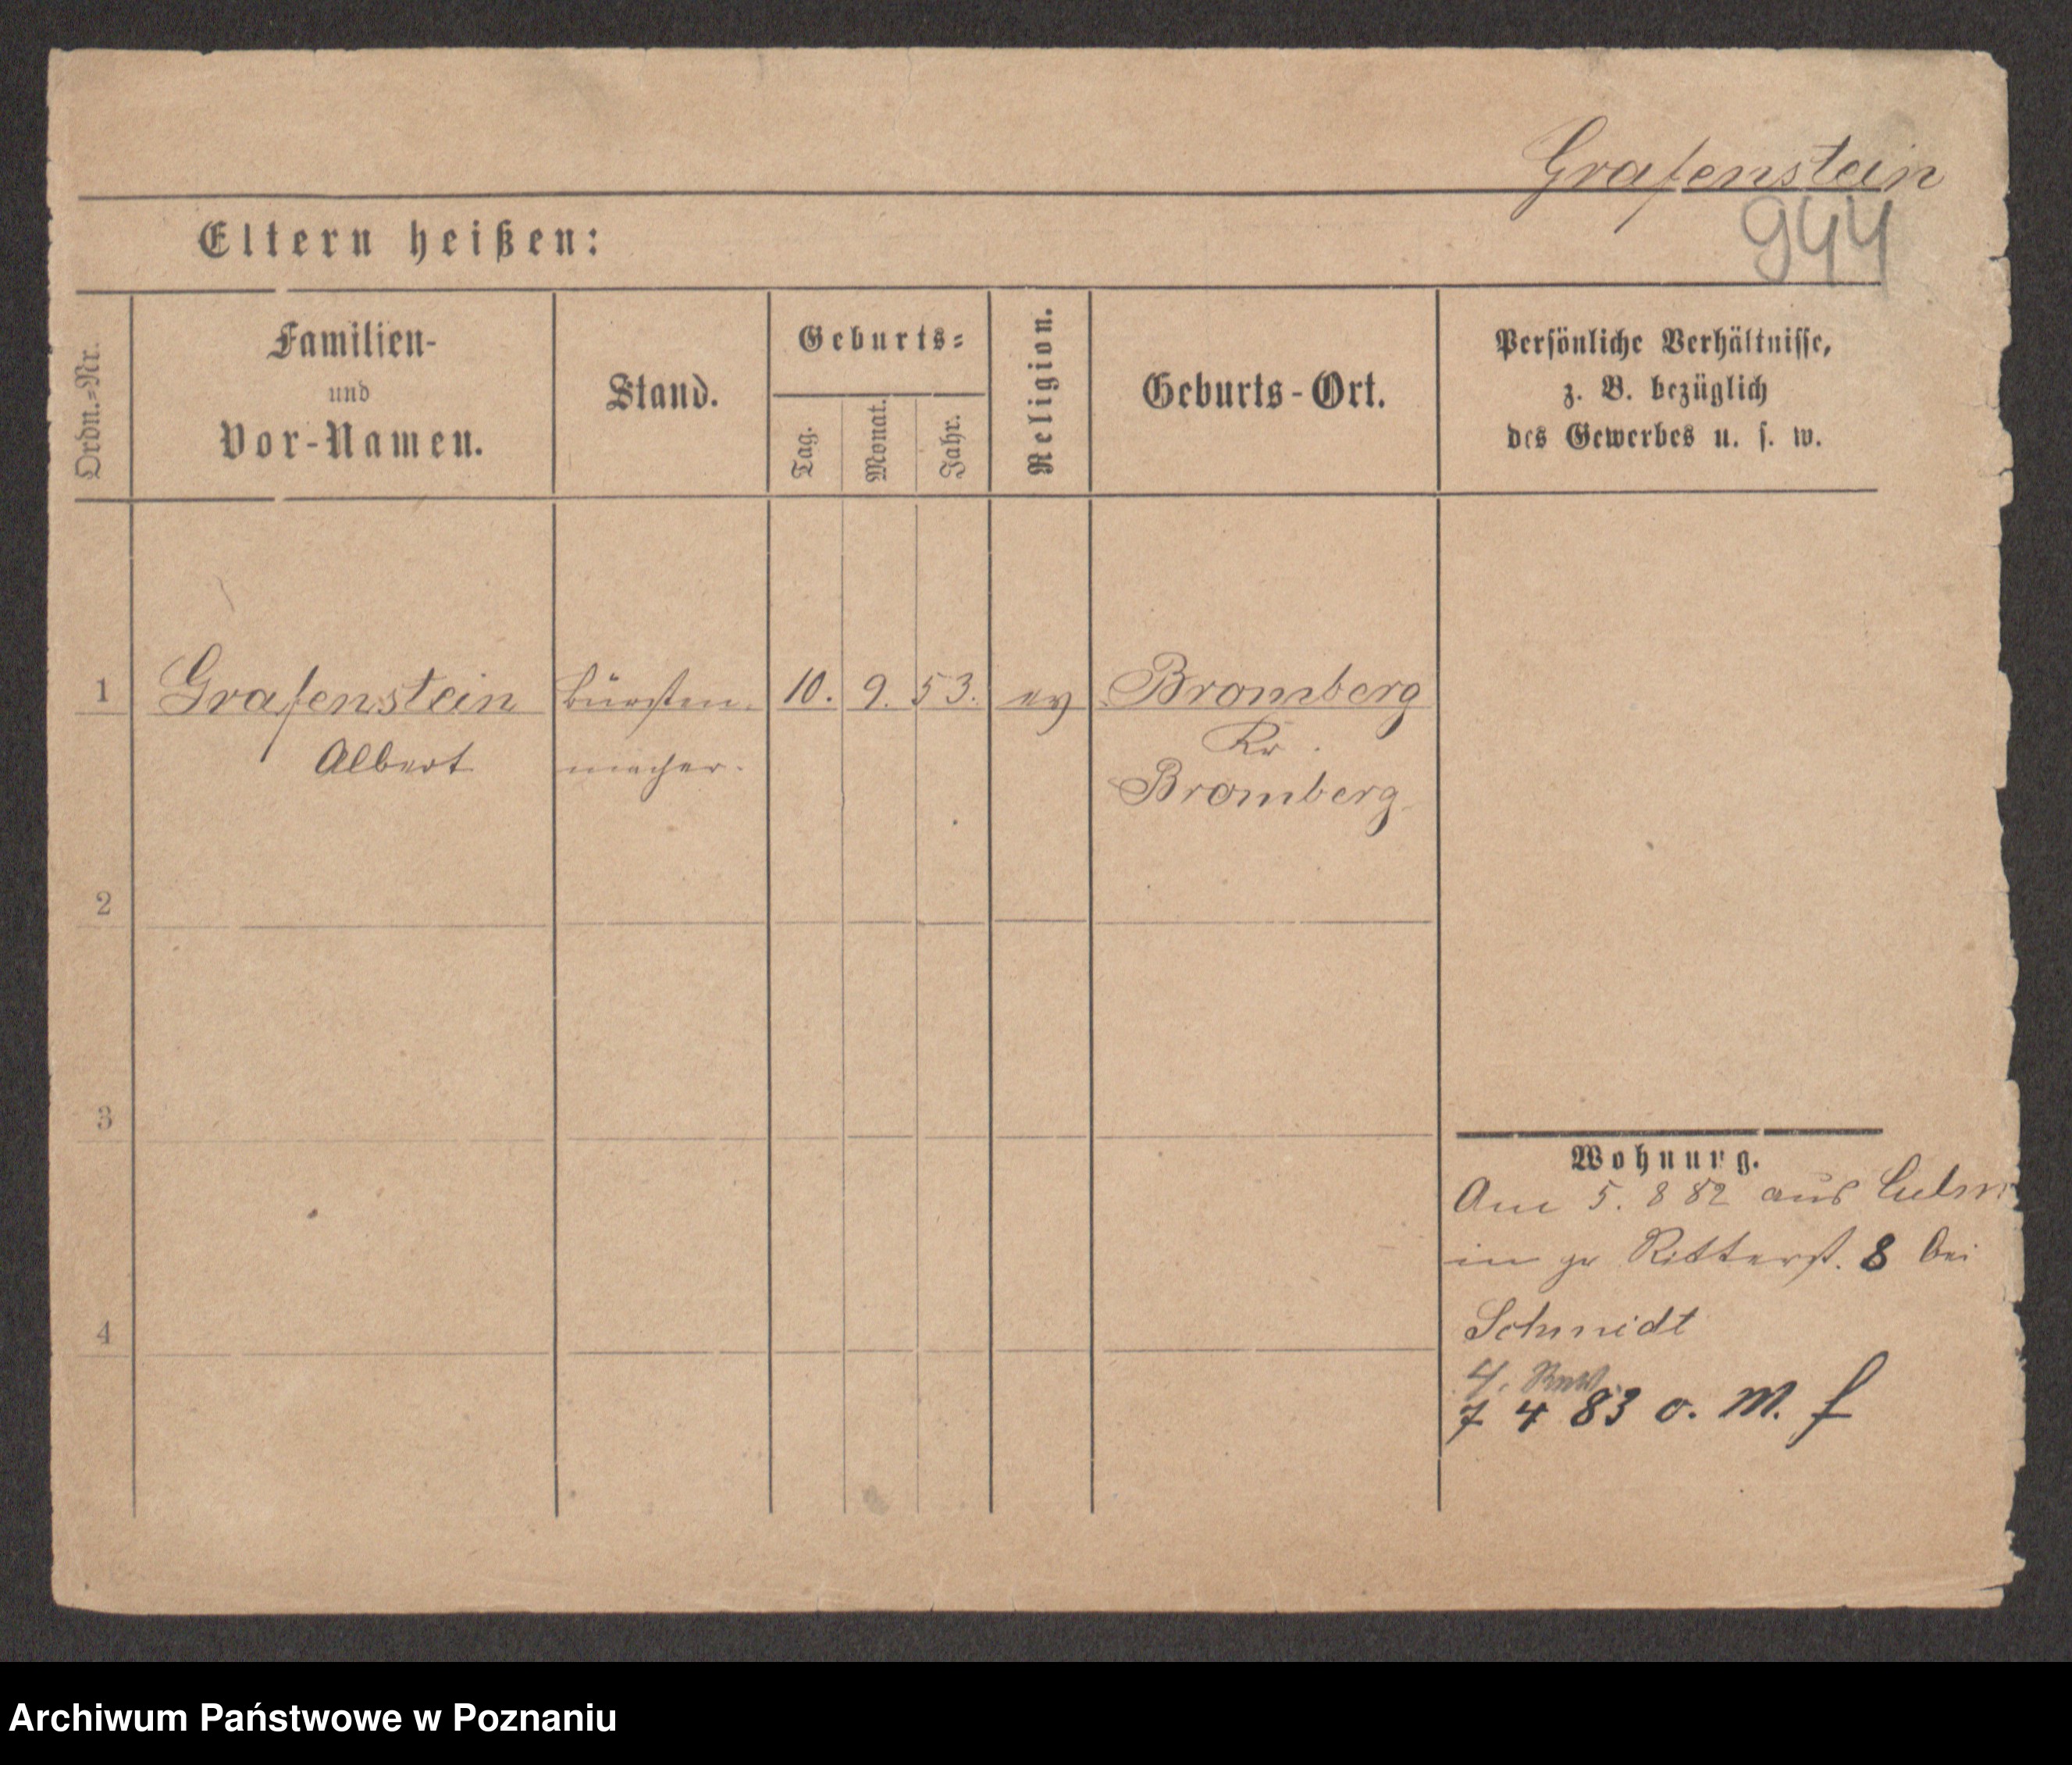 Grafenstein
944
Eltern heißen:
Ordn.-Nr.
Familien-
und
Vor-Namen.
Stand.
Geburts-
Tag.
Monat.
Jahr.
Religion.
Geburts-Ort.
Persönliche Verhältnisse,
z. B. bezüglich
des Gewerbes u. s. w.
1 Grafenstein bürsten- 10. 9. 53. ev Bromberg
Albert macher. Kr.
Bromberg
2
3
4
Wohnung.
Am 5. 8 82 aus Culm
in gr Ritterst. 8 bei
Schmidt
7 4 83 o. M. f
Archiwum Państwowe w Poznaniu